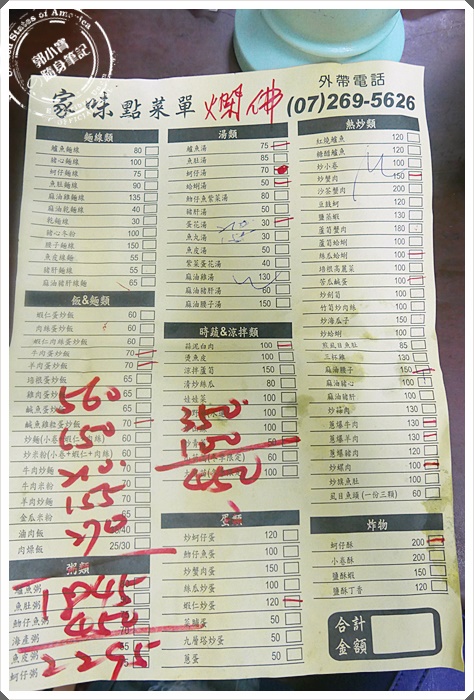 United States of America
郭小寶
隨身筆記
家味點菜單
外帶電話
(07)269-5626
麵線類
鱸魚麵線 80
豬心麵線 100
蚵仔麵線 75
魚肚麵線 90
麻油雞麵線 135
麻油乾麵線 40
乾麵線 30
豬心冬粉 100
腰子麵線 150
魚皮線麵 55
豬肝麵線 55
麻油豬肝線麵 65
飯&麵類
蝦仁蛋炒飯 60
肉絲蛋炒飯 60
蝦仁肉絲蛋炒飯 60
牛肉蛋炒飯 70
羊肉蛋炒飯 70
培根蛋炒飯
雞肉蛋炒飯
鹹魚蛋炒飯
鹹魚雞粒蛋炒飯 70
炒麵(小卷+蝦仁+肉絲)
炒米粉(小卷+蝦仁+肉絲) 60
牛肉炒麵
牛肉米粉
羊肉炒麵 70
金瓜米粉
滷肉飯 /40
肉燥飯 25/30
粥類
魚肚粥
海產粥
魚皮粥
蚵仔粥
湯類
鱸魚湯 75
魚肚湯 85
蚵仔湯 70
蛤蜊湯 50
魩仔魚紫菜湯 60
豬肝湯 50
蛋花湯 30
魚丸湯 30
魚皮湯 50
紫菜蛋花湯 40
麻油雞湯 130
麻油豬肝湯 60
麻油腰子湯 150
時蔬&涼拌類
蒜泥白肉 100
燙魚皮 100
涼拌蘆筍 150
清炒絲瓜 80
娃娃菜 100
100
蛋類
炒蚵仔蛋 120
魩仔魚蛋 100
炒蟹肉蛋 150
絲瓜炒蛋 100
蝦仁炒蛋 120
菜脯蛋 50
九層塔炒蛋 50
蔥蛋 50
熱炒類
紅燒鱸魚 120
糖醋鱸魚 120
炒小卷 100
炒蟹肉 150
沙茶蟹肉 200
豆豉蚵 120
鹽茶蝦 130
蘆筍蟹肉 180
蘆筍蛤蜊 100
絲瓜蛤蜊 100
培根高麗菜 100
苦瓜鹹蛋 100
炒劍筍 100
竹筍炒肉絲 100
炒海瓜子 150
炒蛤蜊 100
煎虱目魚肚 85
三杯雞 130
麻油腰子 150
麻油豬心 100
麻油豬肝 100
炒菇肉 130
蔥爆牛肉 100
蔥爆羊肉 130
蔥爆豬肉 100
炒螺肉 100
炒爆魚肚 100
虱目魚頭(一份三顆) 60
炸物
蚵仔酥 200
小卷酥 200
鹽酥蝦 150
鹽酥丁香 120
合計
金額
560
650
155
270
1845
450
2295
350
100
450